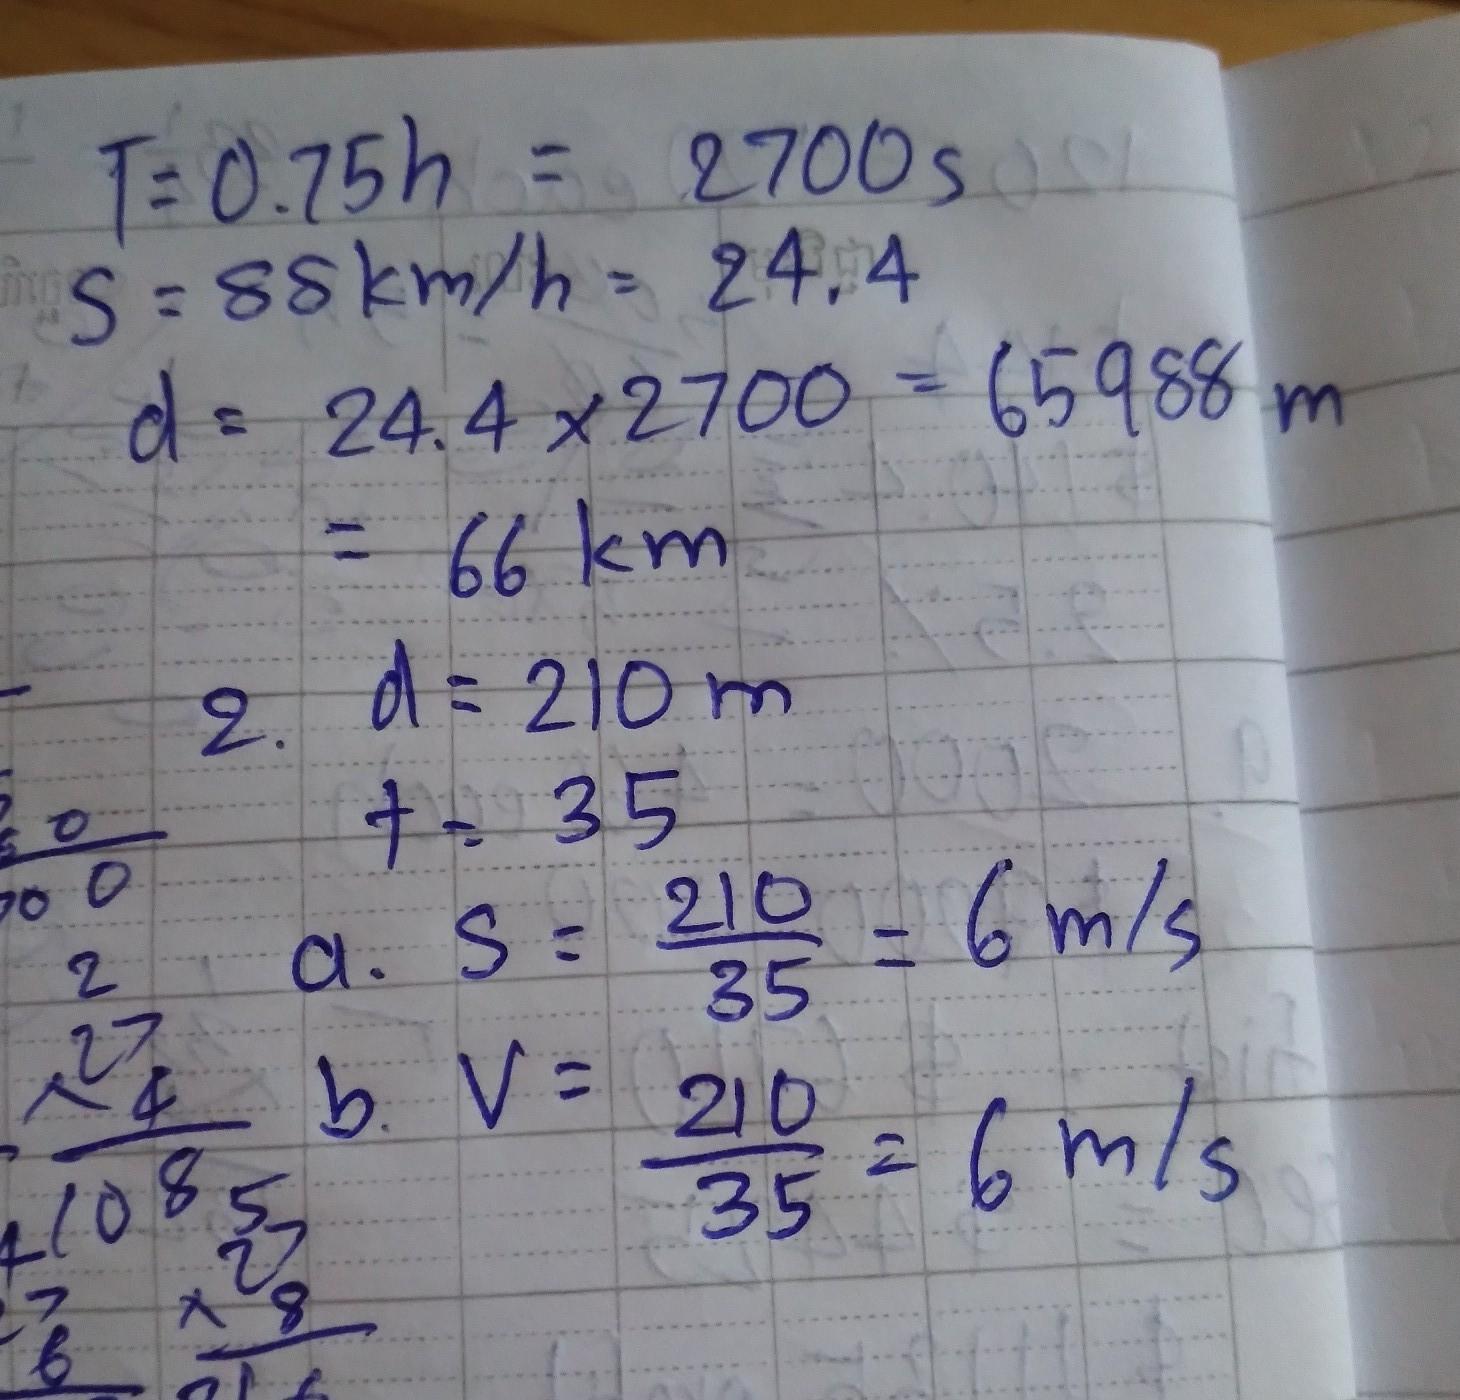 T = 0.75h = 2700s
S = 88km/h = 24.4
d = 24.4 x 2700 = 65988 m
= 66 km
2. d = 210 m
t = 35
a. S = 210/35 = 6 m/s
b. V = 210/35 = 6 m/s
0
00 0
2
27
x 4
108
5
27
x 8
216
7
6